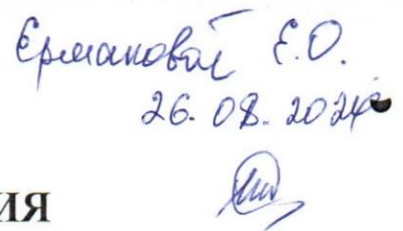 Ермаковой Е.О.
26.08.2024
ия